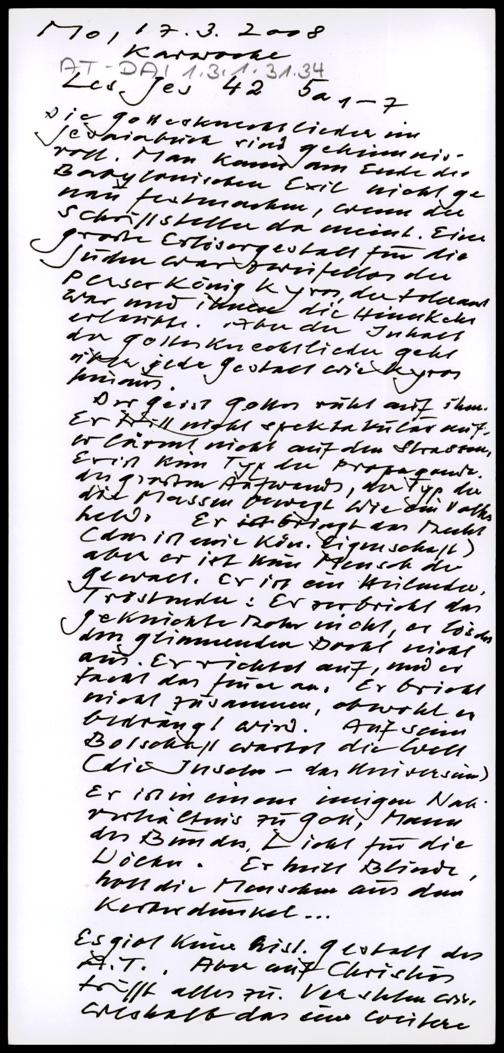 Mo, 17.3.2008
Karwoche
AT-DA: 1.3.1.31.34
Les. Jes 42 5a, 1-7
Die Gottesknechtslieder im
Jesaiabuch sind geheimnis-
voll. Man kann am Ende des
Babylonischen Exil nicht ge
nau festmachen, wenn der
Schriftsteller da meint. Eine
große Erlösergestalt für die
Juden war zweifellos der
Perserkönig Kyros, der tolerant
war und ihnen die Heimkehr
erlaubte. Aber der Inhalt
der Gottesknechtslieder geht
über jede Gestalt wie Kyros
hinaus.
Der Geist Gottes ruht auf ihm.
Er tritt nicht spektakulär auf.
er lärmt nicht auf den Strassen,
Er ist kein Typ der Propaganda.
des großen Aufwands, der Typ der
die Massen bewegt wie ein Volks
held. Er bringt das Recht
(das ist eine Kön. Eigenschaft)
aber er ist kein Mensch der
Gewalt. Er ist ein Heilender,
Tröstender: Er zerbricht das
geknickte Rohr nicht, er löscht
den glimmenden Docht nicht
aus. Er richtet auf, und er
facht das Feuer an. Er bricht
nicht zusammen, obwohl er
bedrängt wird. Auf sein
Botschaft wartet die Welt
(die Inseln - das Universum)
Er ist in einem innigen Nah-
verhältnis zu Gott, Mann
des Bundes, Licht für die
Völker. Er heilt Blinde,
holt die Menschen aus dem
Kerkerdunkel...
Es gibt keine hist. Gestalt des
A.T.. Aber auf Christus
trifft alles zu. Verstehen wir,
weshalb das eine weitere